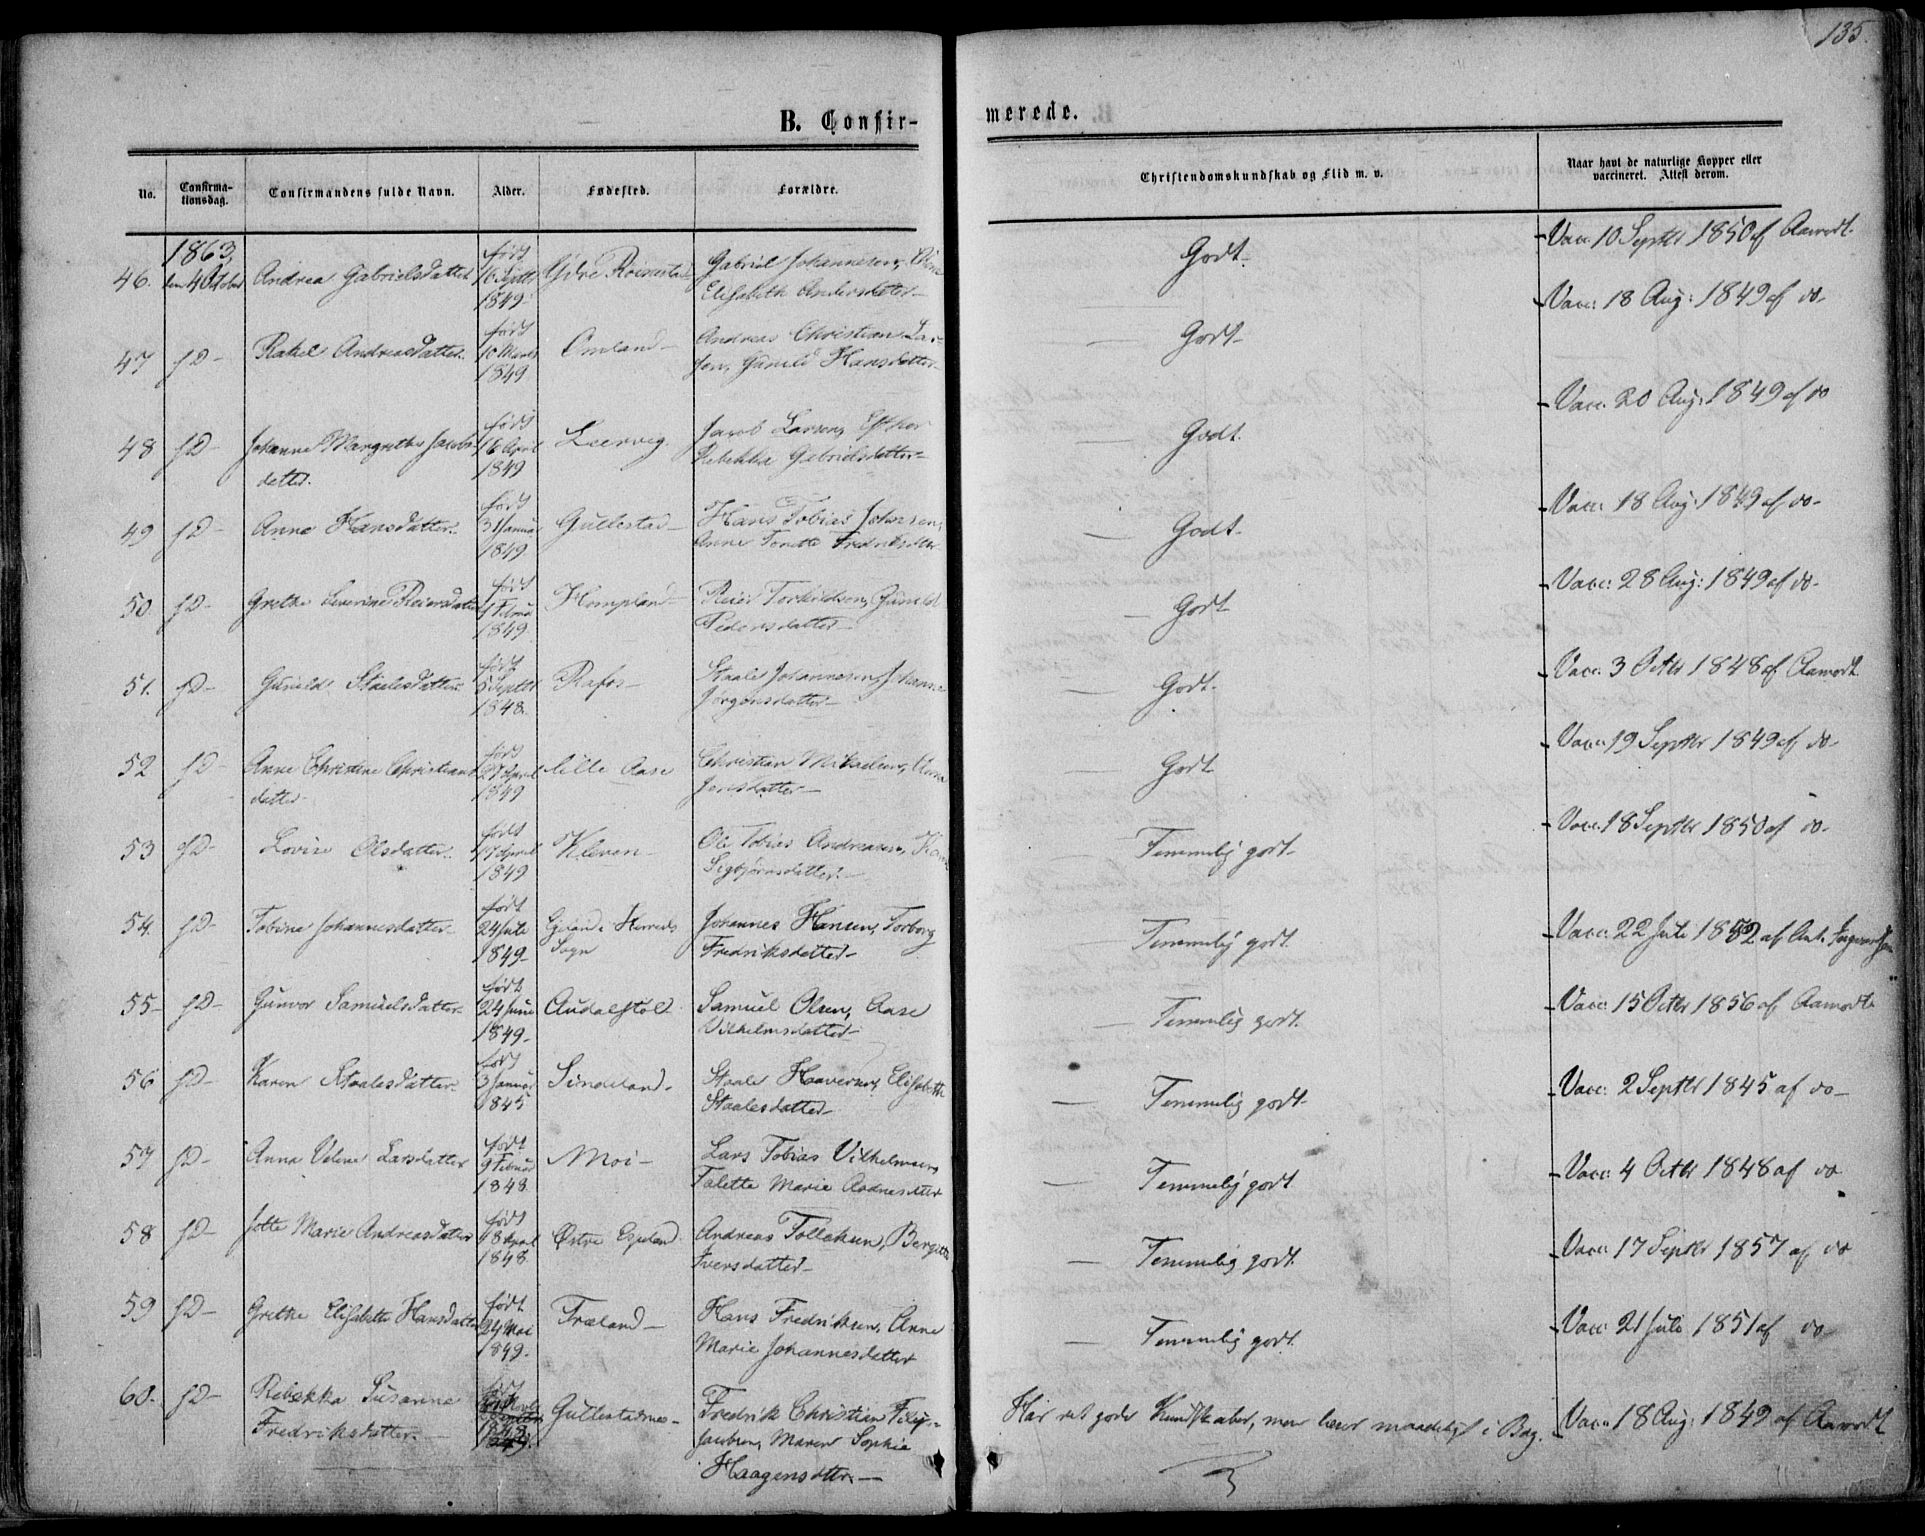 135.
B. Confir-
merede.
No.
Confirma-
tionsdag.
Confirmandens fulde Navn.
Alder.
Fødested.
Forældre.
Christendomskundskab og Flid m. v.
Naar havt de naturlige Kopper eller
vaccineret. Attest derom.
1863,
46. den 4 October Andrea Gabrielsdatter født 16 Septbr 1849 Gabriel Johannesen,
Elisabeth Andersdatter
Godt.
Vacc. 10 Septbr 1850 af Aamodt.
47 do Rakel Andreasdatter født 10 Marts 1849 Omland Andreas Christian Lar-
sen, Gunild Hansdatter
Godt
Vacc. 18 Aug: 1849 af do
48 do Johanne Margrethe Jacobs-
datter.
født 16 April 1849 Leervig. Jacob Larsen, Esther
Rebekka Gabrielsdatter
Godt.
Vacc. 20 Aug: 1849 af do
49 do Anne Hansdatter. født 31 Januar 1849 Gullestad Hans Tobias Johnsen,
Anne Tonette Fredriksdtter
Godt
Vacc: 18 Aug: 1849 af do
50 do Grethe Severine Reiersdatter født Februar 1849. Hompland Reier Torkildsen, Gunild
Pedersdatter
Godt
Vacc: 28 Aug: 1849 af do
51. do Gunild Staalesdatter født 5 Septbr 1848. Rafos Staale Johannesen, Johanne
Jørgensdatter
Godt.
Vacc. 3 Octbr 1848 af Aamodt
52 do Anne Christine Christians-
datter
født 27 April 1849 lille Aase Christian Mikaelsen, Anna
Jensdatter
Godt
Vacc. 19 Septbr 1849 af do
53 do Lovise Olsdatter. født 17 April 1849 Kleven Ole Tobias Andreasen,
Sigbjørnsdatter.
Temmelig godt
Vacc. 18 Septbr 1850 af do
54. do Tobine Johannesdatter født 24 Juli 1849 Egeland i Herreds
Sogn
Johannes Hansen, Torborg
Fredriksdatter
Temmelig godt
Vacc. 22 Juli 1852 af Ant. Ingvaldsen
55 do Gunvor Samuelsdatter født 24 Juni 1849 Audalstøl Samuel Olsen, Aase
Vilhelmsdatter
Temmelig godt.
Vacc 15 Octbr 1856 af Aamodt
56 do Karen Staalesdatter født 3 Januar 1845 Sindeland. Staale Haaversen, Elisabeth
Staalesdatter
Temmelig godt
Vacc. 2 Septbr 1845 af do
57 do Anna Veline Larsdatter født 9 Februar 1848 Moi Lars Tobias Vilhelmsen
Talette Marie Aadnesdtter
Temmelig godt
Vacc 4 Octbr 1848 af do
58 do Jotte Marie Andreasdatter født 18 April 1848 Østre Egeland Andreas Tollaksen, Bergitte
Iversdatter
Temmelig godt.
Vacc 17 Septbr 1857 af do
59 do Grethe Elisabeth Hansdatter født 24 Mai 1849. Træland Hans Fredriksen, Anne
Marie Johannesdatter
Temmelig godt.
Vacc 21 Juli 1851 af do
60. do Rebekka Susanne
Fredriksdatter
født Gullestadnes Fredrik Christian Filip
Jacobsen, Maren Sophie
Haagensdtter
Har ret gode Kundskaber, men læser maadeligt i Bog.
Vacc 18 Aug: 1849 af Aamodt